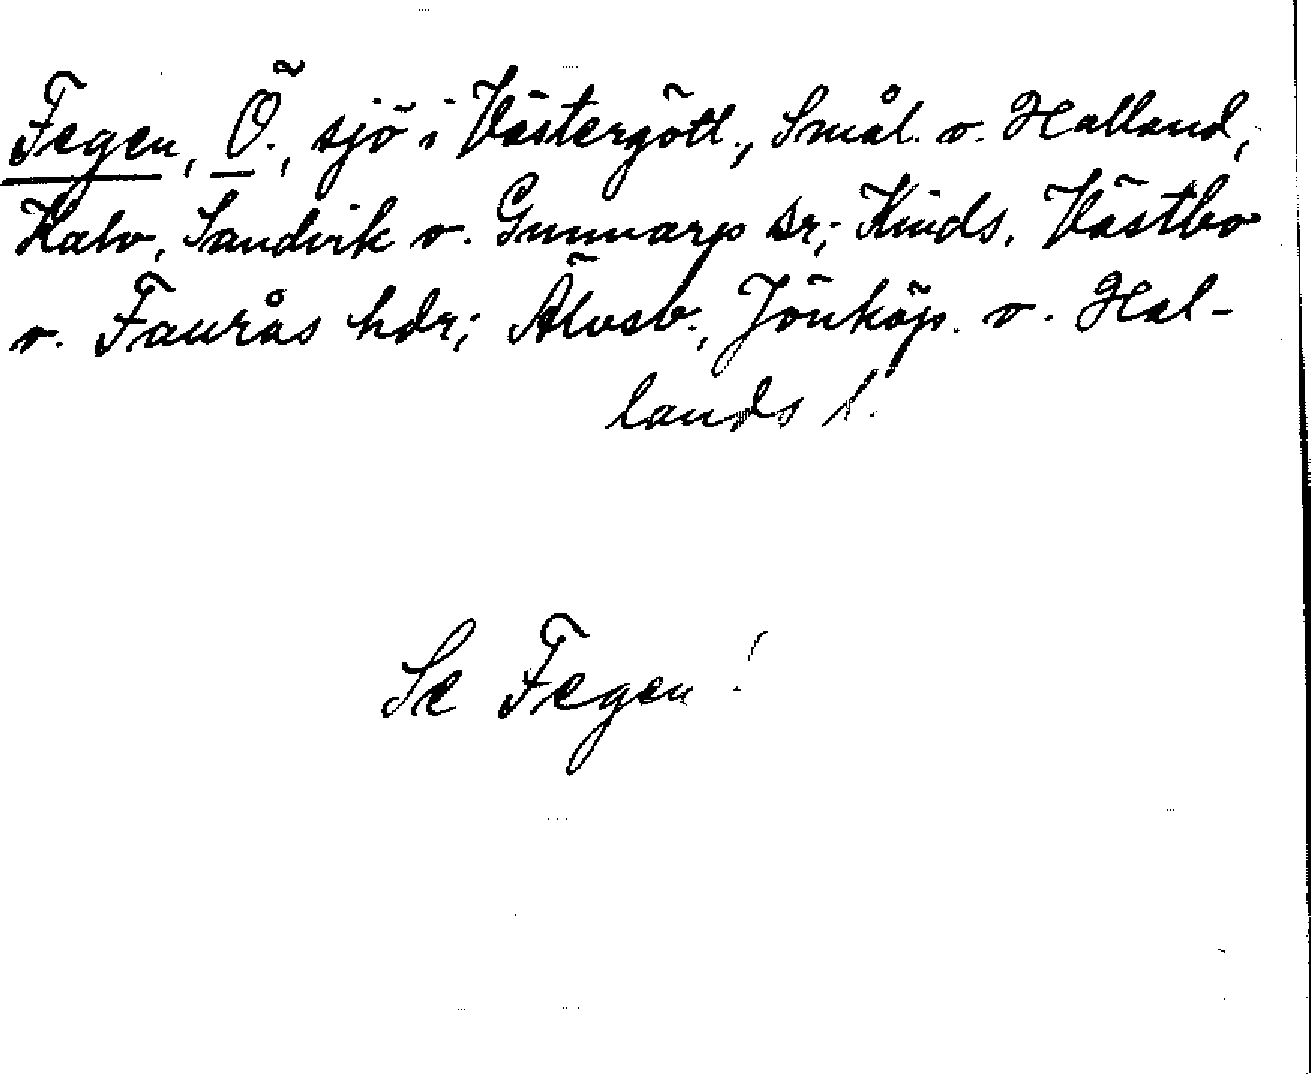 Fegen, Ö., sjö i Västergötl., Smål. o. Halland,
Kalv, Sandvik o. Gunnarps snr; Kinds, Västbo
o. Faurås hdr; Älvsb., Jönköp. o. Hal-
lands l.
Se Fegen!